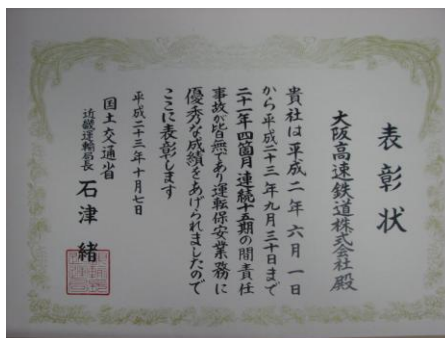 表彰状
大阪高速鉄道株式会社殿
貴社は平成二年六月一日
から平成二十三年九月三十日まで
二十一年四箇月連続十五期の間責任
事故が皆無であり運転保安業務に
優秀な成績をあげられましたので
ここに表彰します
平成二十三年十月七日
国土交通省
近畿運輸局長 石津緒